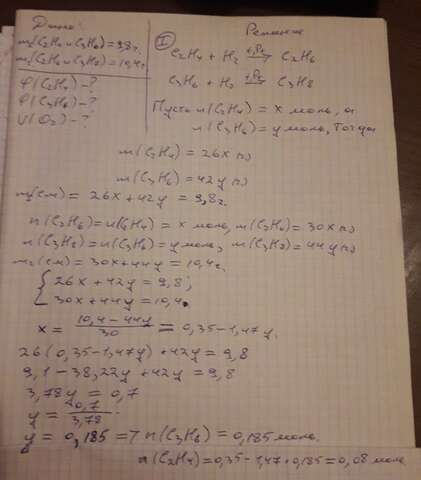 Дано:
m(C₂H₄ и C₃H₆) = 9,8 г.
m(C₂H₆ и C₃H₈) = 10,4 г.
φ(C₂H₄) - ?
φ(C₃H₆) - ?
V(O₂) - ?
Решение
I
C₂H₄ + H₂ →(t, Pt) C₂H₆
C₃H₆ + H₂ →(t, Pt) C₃H₈
Пусть n(C₂H₄) = x моль, а
n(C₃H₆) = y моль, тогда
m(C₂H₄) = 26x г,
m(C₃H₆) = 42y г,
m₁(см) = 26x + 42y = 9,8 г.
n(C₂H₆) = n(C₂H₄) = x моль, m(C₂H₆) = 30x г,
n(C₃H₈) = n(C₃H₆) = y моль, m(C₃H₈) = 44y г,
m₂(см) = 30x + 44y = 10,4 г.
{ 26x + 42y = 9,8;
30x + 44y = 10,4.
x = (10,4 - 44y)/30 = 0,35 - 1,47y.
26(0,35 - 1,47y) + 42y = 9,8
9,1 - 38,22y + 42y = 9,8
3,78y = 0,7
y = 0,7/3,78.
y = 0,185 => n(C₃H₆) = 0,185 моль.
n(C₂H₄) = 0,35 - 1,47 • 0,185 = 0,08 моль